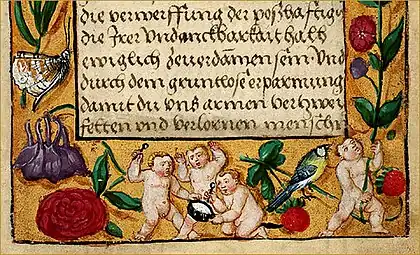 die verwerffung der poßhafftige
die Irer Undanckbarkait hath
ewiglich zeuerdamen sein. Und
durch dem gruntlose erparmung
damit du vns armen
vnd verlornen mensch